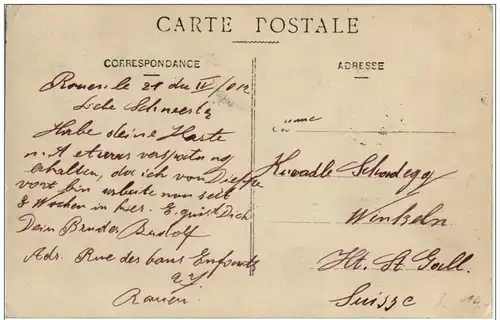 CARTE POSTALE
CORRESPONDANCE
ADRESSE
Rouen le 21 du IV/012
Liebe Schwester
Habe deine Karte
n. A etwas verspätung
erhalten, da ich von Dieppe
fort bin arbeite nun seit
3 Wochen in hier. E. grüsst Dich
Dein Bruder Rudolf
Adr. Rue des bons Enfants
Rouen
Schondegg
Winkeln
Kt. St. Gall.
Suisse